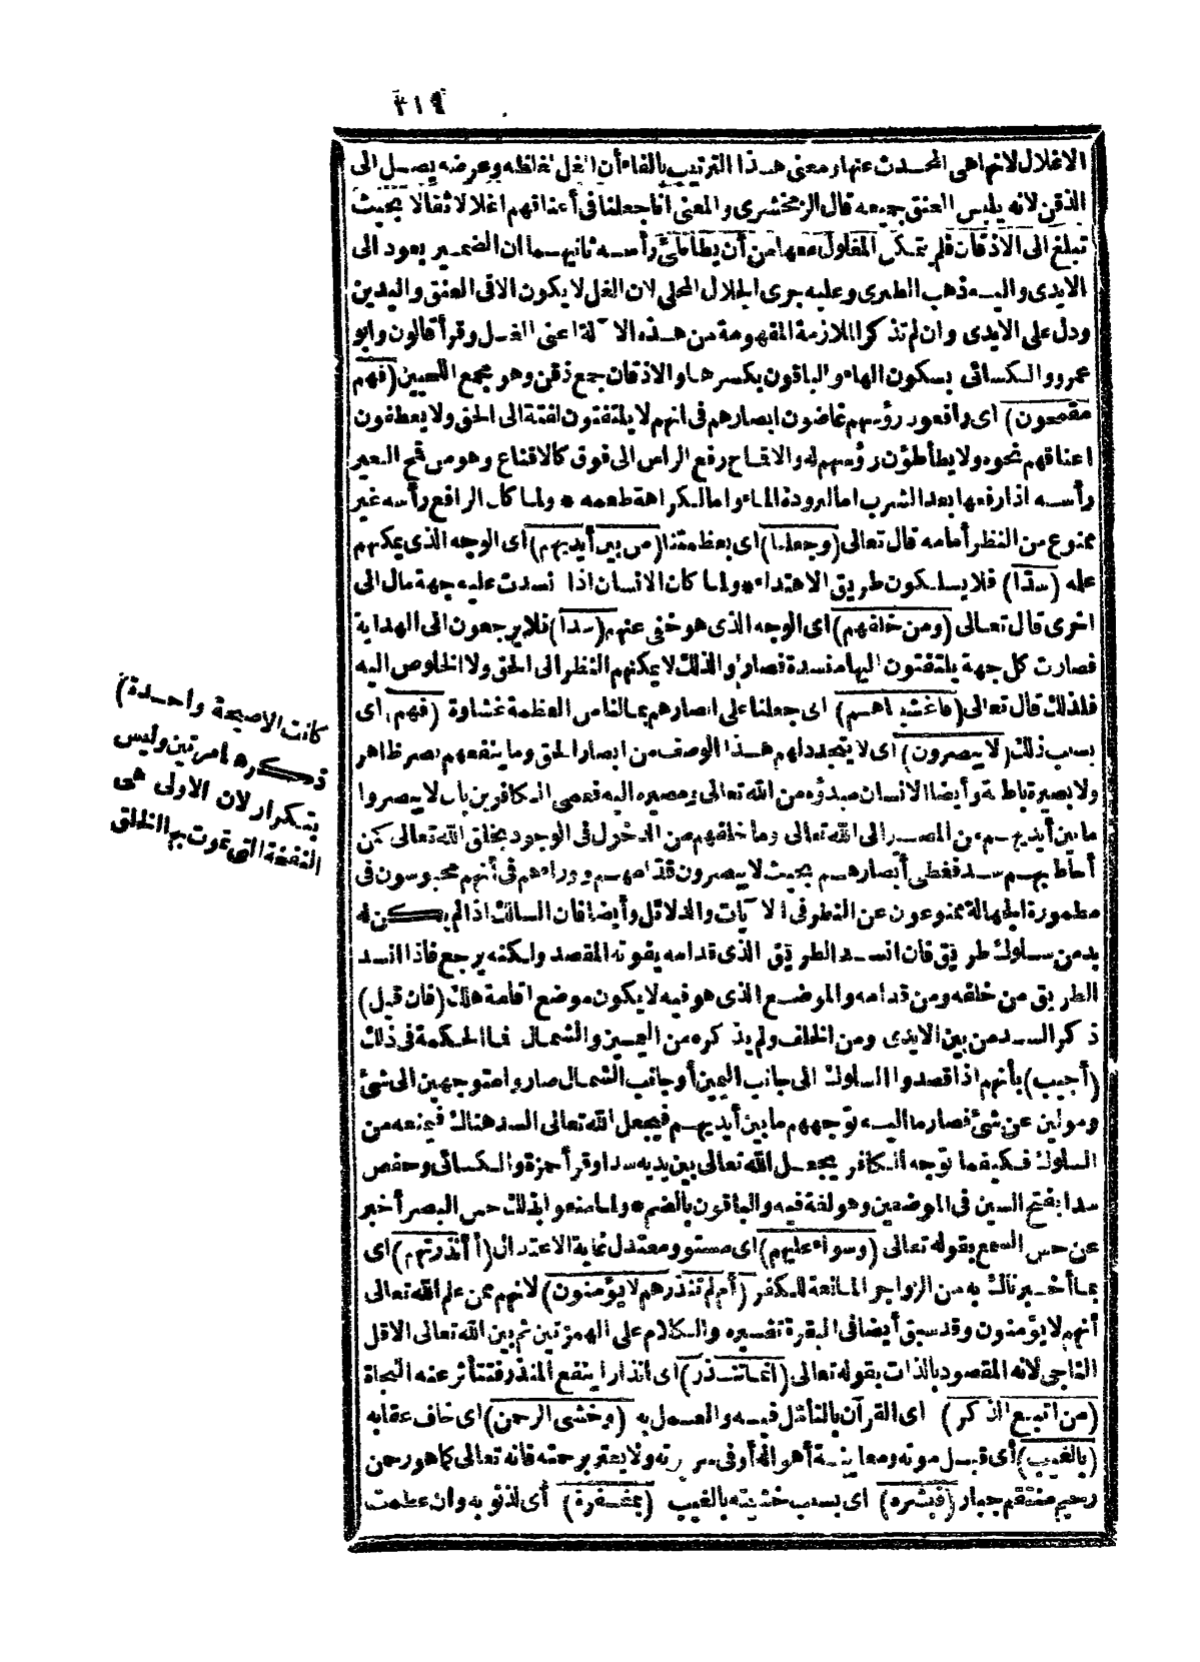 ٣١٩
الاغلال لانها هى المحدث عنها ومعنى هذا الترتيب بالفاء أن الغل لغلظه وعرضه يصل الى
الذقن لانه يلبس العنق جميعه قال الزمخشرى والمعنى انا جعلنا فى أعناقهم اغلالا ثقالا بحيث
تبلغ الى الاذقان فلم يتمكن المغلول معها من أن يطاطئ رأسه ثانيهما ان الضمير يعود الى
الايدى واليه ذهب الطبرى وعليه جرى الجلال المحلى لان الغل لا يكون الا فى العنق واليدين
ودل على الايدى وان لم تذكر الملازمة المفهومة من هذه الآلة اعنى الغل وقرأ قالون وابو
عمرو والكسائى بسكون الهاء والباقون بكسرها والاذقان جمع ذقن وهو مجمع اللحيين (فهم
مقمحون) اى رافعون رؤسهم غاضون ابصارهم فى انهم لا يلتفتون لفتة الى الحق ولا يعطفون
اعناقهم نحوه ولا يطأطؤن رؤسهم له والاقماح رفع الراس الى فوق كالاقناع وهو من قمح البعير
رأسه اذا رفعها بعد الشرب اما لبرودة الماء واما لكراهة طعمه * ولما كان الرافع رأسه غير
ممنوع من النظر أمامه قال تعالى (وجعلنا) اى بعظمتنا (من بين أيديهم) اى الوجه الذى يمكنهم
علمه (سدا) فلا يسلكون طريق الاهتداء * ولما كان الانسان اذا انسدت عليه جهة مال الى
اخرى قال تعالى (ومن خلفهم) اى الوجه الذى هو خفى عنهم (سدا) فلا يرجعون الى الهداية
فصارت كل جهة يلتفتون اليها منسدة فصاروا لذلك لا يمكنهم النظر الى الحق ولا الخلوص اليه
فلذلك قال تعالى (فاغشيناهم) اى جعلنا على ابصارهم بما لنا من العظمة غشاوة (فهم) اى
بسبب ذلك (لا يبصرون) اى لا يتجدد لهم هذا الوصف من ابصار الحق وما ينفعهم بصر ظاهر
ولا بصيرة باطنة وأيضا الانسان مبدؤه من الله تعالى ومصيره اليه فعمى الكافرين بان لا يبصروا
ما بين أيديهم من المصير الى الله تعالى وما خلفهم من الدخول فى الوجود بخلق الله تعالى كمن
أحاط بهم سد فغطى أبصارهم بحيث لا يبصرون قدامهم ووراءهم فى أنهم محبوسون فى
مطمورة الجهالة ممنوعون عن النظر فى الآيات والدلائل وأيضا فان السالك اذا لم يكن له
بد من سلوك طريق فان انسد الطريق الذى قدامه يفوته المقصد ولكنه يرجع فاذا انسد
الطريق من خلفه ومن قدامه والموضع الذى هو فيه لا يكون موضع اقامة هلك (فان قيل)
ذكر السد من بين الايدى ومن الخلف ولم يذكره من اليمين والشمال فما الحكمة فى ذلك
(أجيب) بأنهم اذا قصدوا السلوك الى جانب اليمين أو جانب الشمال صاروا متوجهين الى شئ
ومولين عن شئ فصار ما اليه توجههم ما بين أيديهم فيجعل الله تعالى السد هناك فيمنعه من
السلوك فكيفما توجه الكافر يجعل الله تعالى بين يديه سدا وقرأ حمزة والكسائى وحفص
سدا بفتح السين فى الموضعين وهو لغة فيه والباقون بالضم * ولما منعوا بذلك حس البصر أخبر
عن حس السمع بقوله تعالى (وسواء عليهم) اى مستو ومعتدل غاية الاعتدال (أأنذرتهم) اى
بما أخبرناك به من الزواجر المانعة للكفر (أم لم تنذرهم لا يؤمنون) لانهم ممن علم الله تعالى
أنهم لا يؤمنون وقد سبق أيضا فى البقرة تفسيره والكلام على الهمزتين ثم بين الله تعالى الاقل
الناجى لانه المقصود بالذات بقوله تعالى (انما تنذر) اى انذارا ينتفع المنذر فتتأثر عنه النجاة
(من اتبع الذكر) اى القرآن بالتأمل فيه والعمل به (وخشى الرحمن) اى خاف عقابه
(بالغيب) أى قبل موته ومعاينة أهواله أو فى سريرته ولا يغتر برحمته فانه تعالى كما هو رحمن
رحيم منتقم جبار (فبشره) اى بسبب خشيته بالغيب (بمغفرة) أى لذنوبه وان عظمت
كانت الاصيحة واحدة)
ذكره امرتين وليس
بتكرار لان الاولى هى
النفخة التى تموت بها الخلق